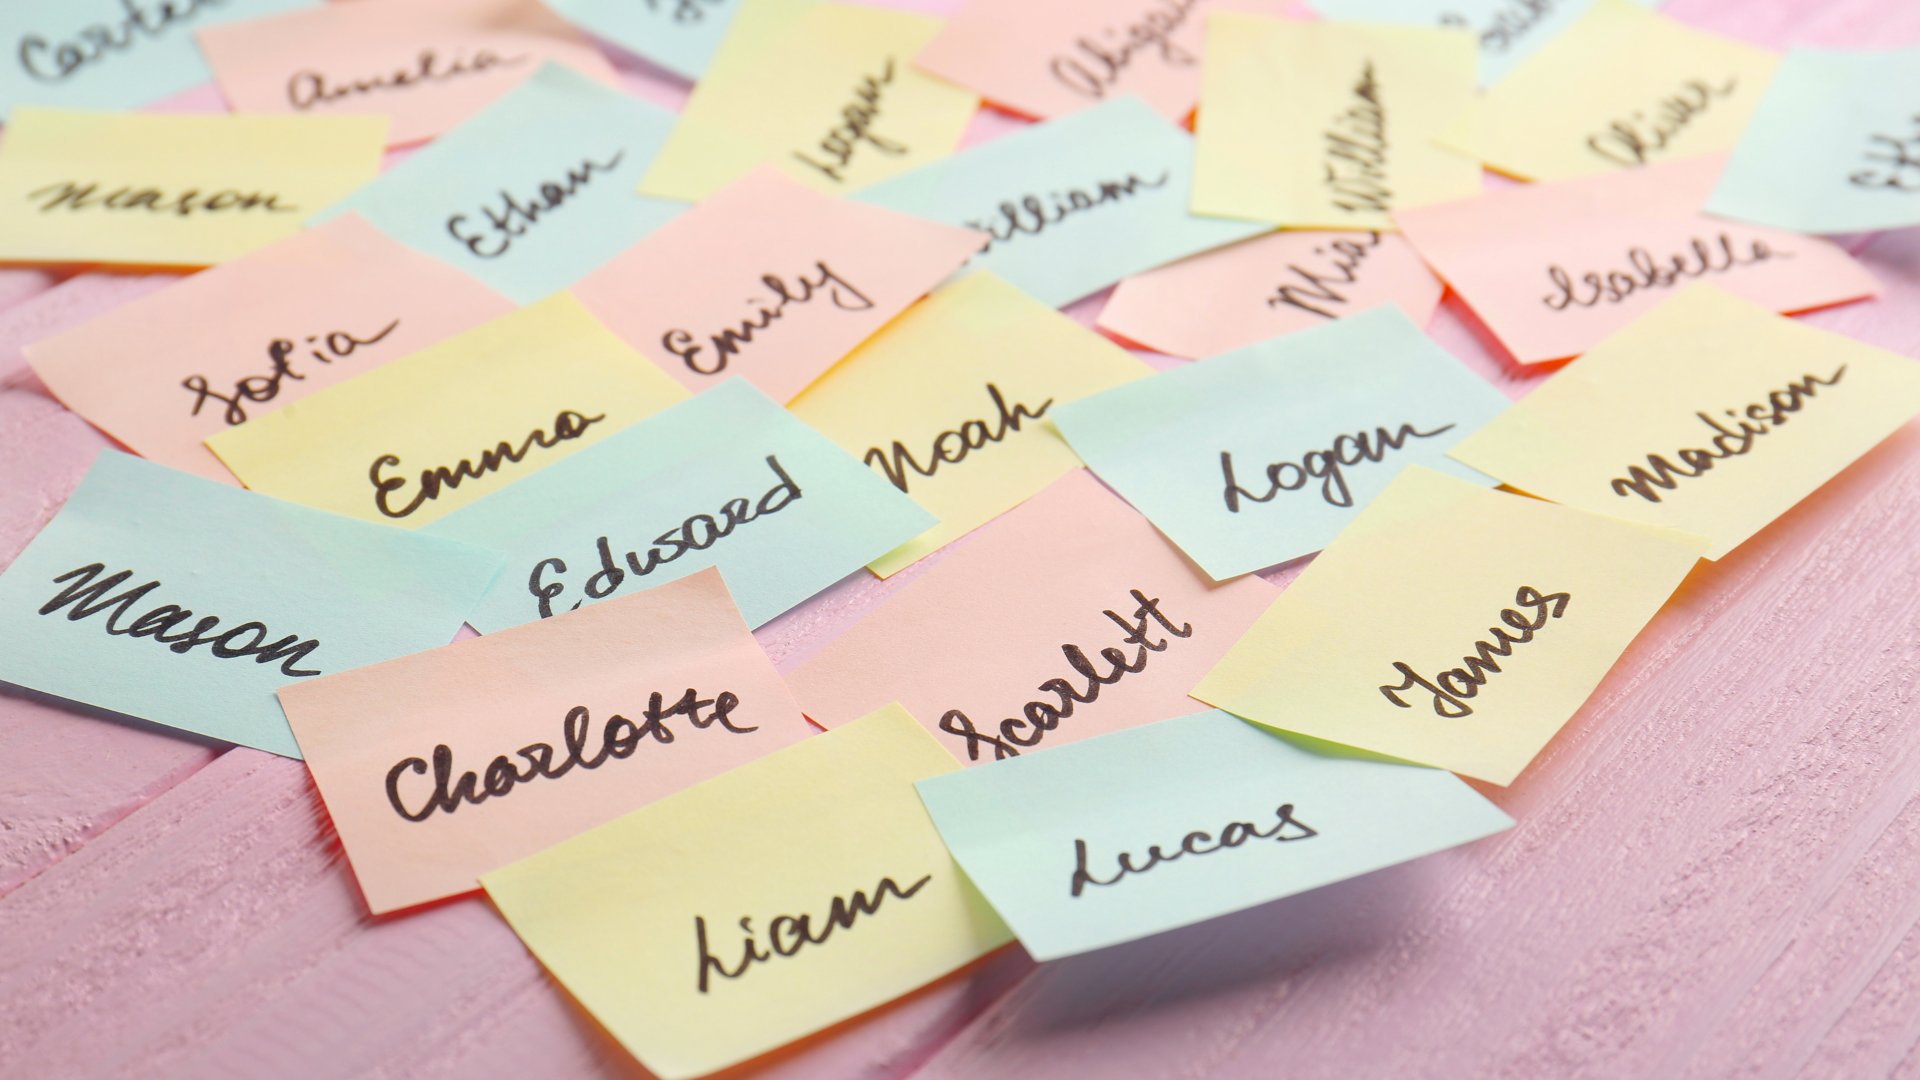 Carter
Amelia
Logan
Abigail
William
Oliver
Mason
Ethan
William
Mia
Isabella
Sofia
Emily
Emma
Noah
Logan
Madison
Edward
Mason
Scarlett
James
Charlotte
Liam
Lucas